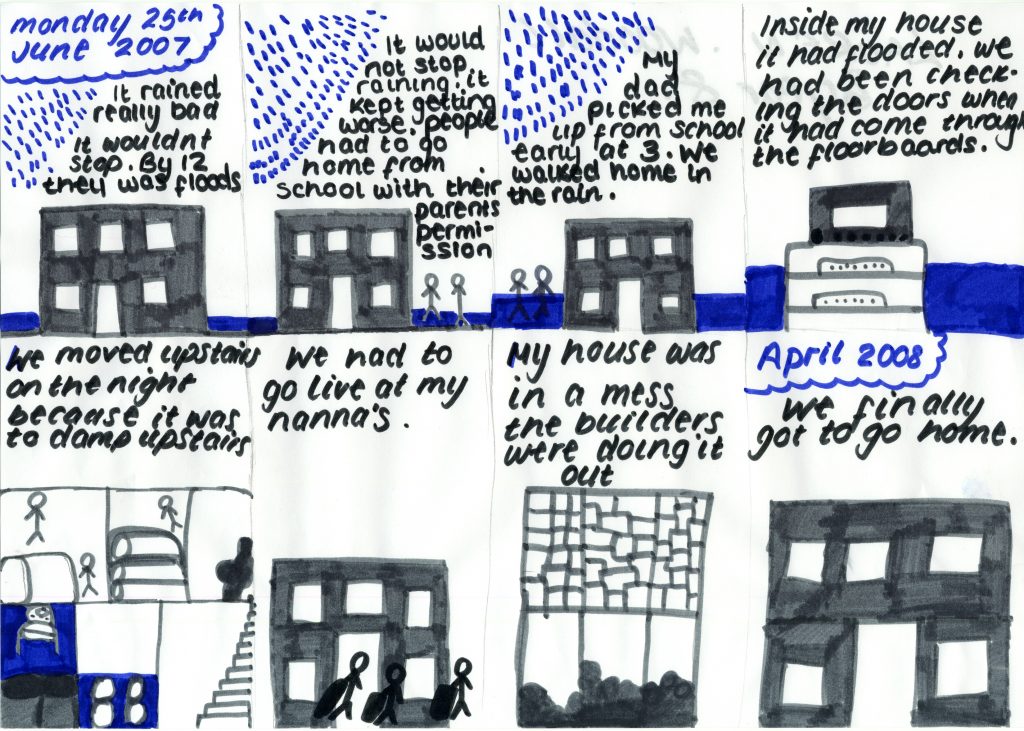 monday 25th
June 2007
it rained
really bad
it wouldnt
stop. By 12
they was floods
it would
not stop
raining. it
kept getting
worse. people
had to go
home from
school with their
parents
permi-
ssion
My
dad
picked me
up from school
early at 3. We
walked home in
the rain.
Inside my house
it had flooded. we
had been check-
ing the doors when
it had come through
the floorboards.
We moved upstairs
on the night
because it was
to damp upstairs
We had to
go live at my
nanna's.
My house was
in a mess
the builders
were doing it
out
April 2008
We finally
got to go home.